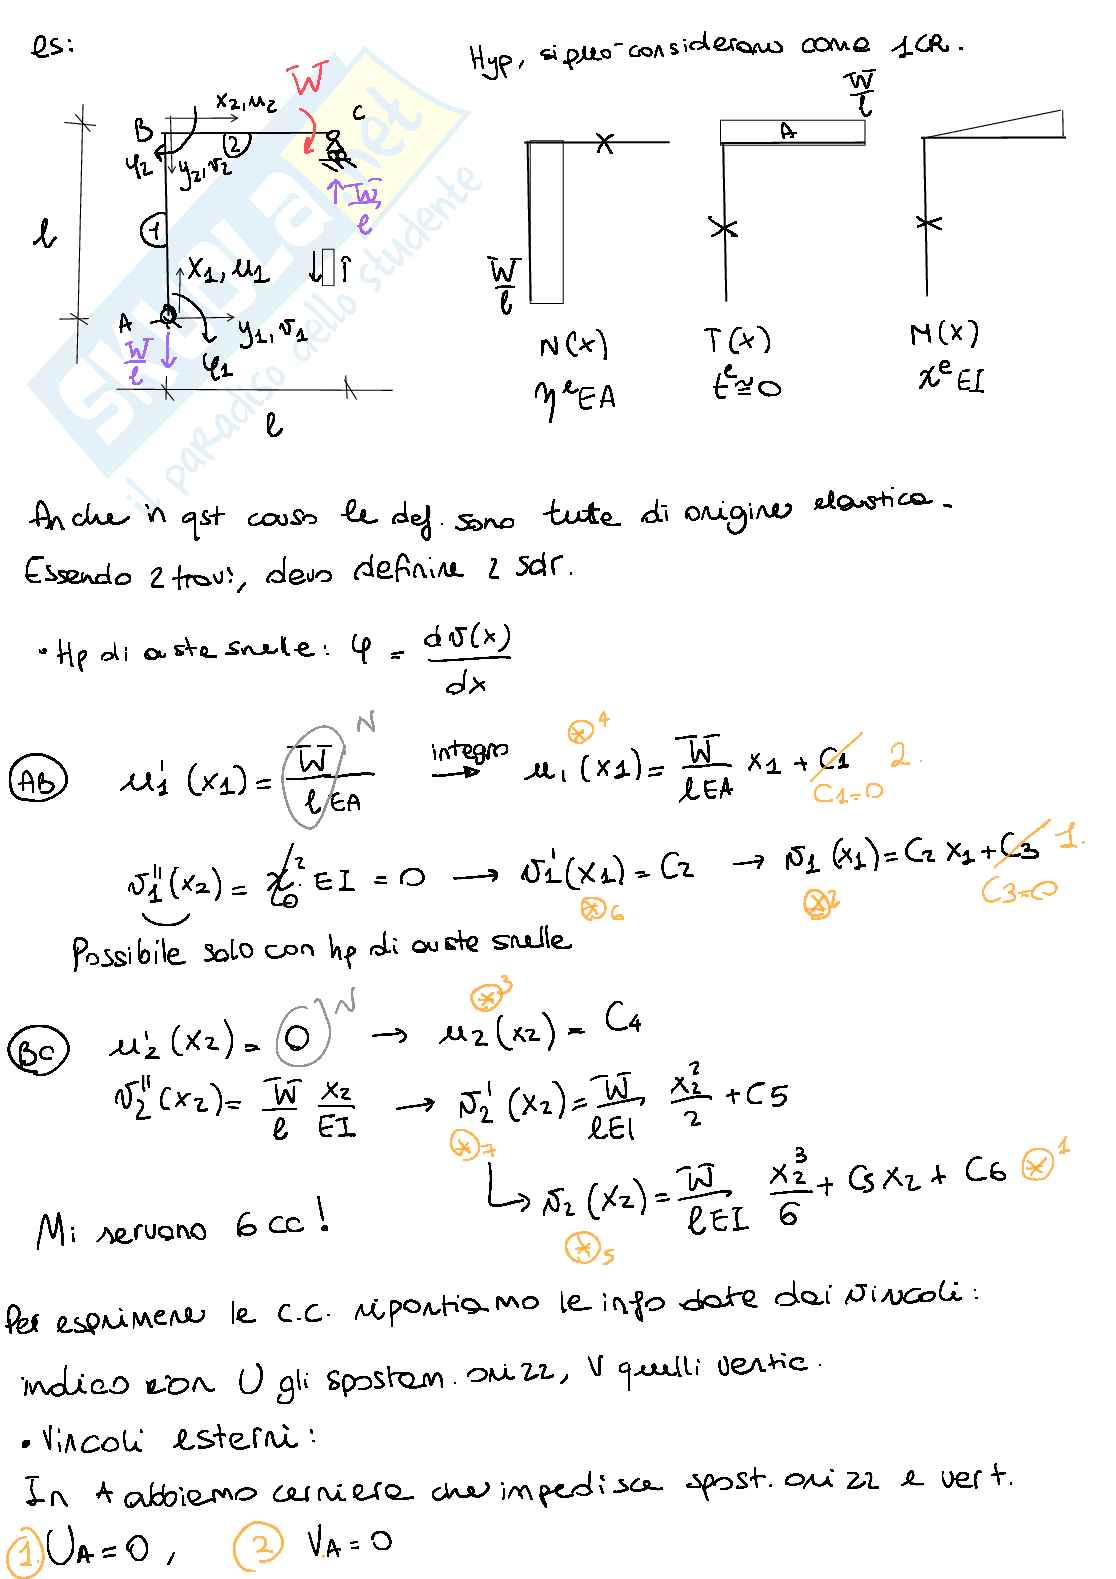 es:
Hyp, si può considerare come 1CR.
W
x2, u2
B
C
φ2
y2, v2
2
W/l
l
1
x1, u1
A
y1, v1
φ1
W/l
l
W/l
A
W/l
N(x)
T(x)
M(x)
η^e EA
t^e ≅ 0
χ^e EI
SKUOLA.net
il paradiso dello studente
Anche in qst caso le def. sono tutte di origine elastica.
Essendo 2 travi, devo definire 2 sdr.
• Hp di aste snelle: φ = dv(x)/dx
AB u1'(x1) = W/lEA N integro → u1(x1) = W/lEA x1 + C1 2. C1=0 *4
v1''(x2) = χ EI = 0 → v1'(x1) = C2 *6 → v1(x1) = C2 x1 + C3 1. C3=0 *2
Possibile solo con hp di aste snelle
BC u2'(x2) = 0 N → u2(x2) = C4 *3
v2''(x2) = W/l x2/EI → v2'(x2) = W/lEI x2²/2 + C5 *7
↳ v2(x2) = W/lEI x2³/6 + C5 x2 + C6 *1 *5
Mi servono 6 cc!
Per esprimere le c.c. riportiamo le info date dai vincoli:
indico con U gli spostam. orizz, V quelli vertic.
• Vincoli esterni:
In A abbiamo cerniera che impedisce spost. orizz e vert.
1. UA = 0, 2 VA = 0